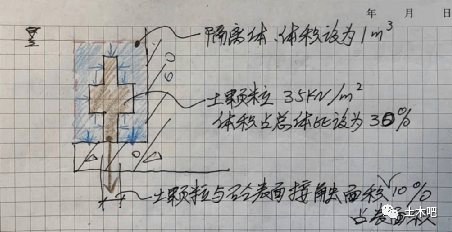 年 月 日
隔离体、体积设为1m³
土颗粒 35KN/m²
体积占总体比设为30%
土颗粒与石仓表面接触面积 10%
占表面积
土木吧